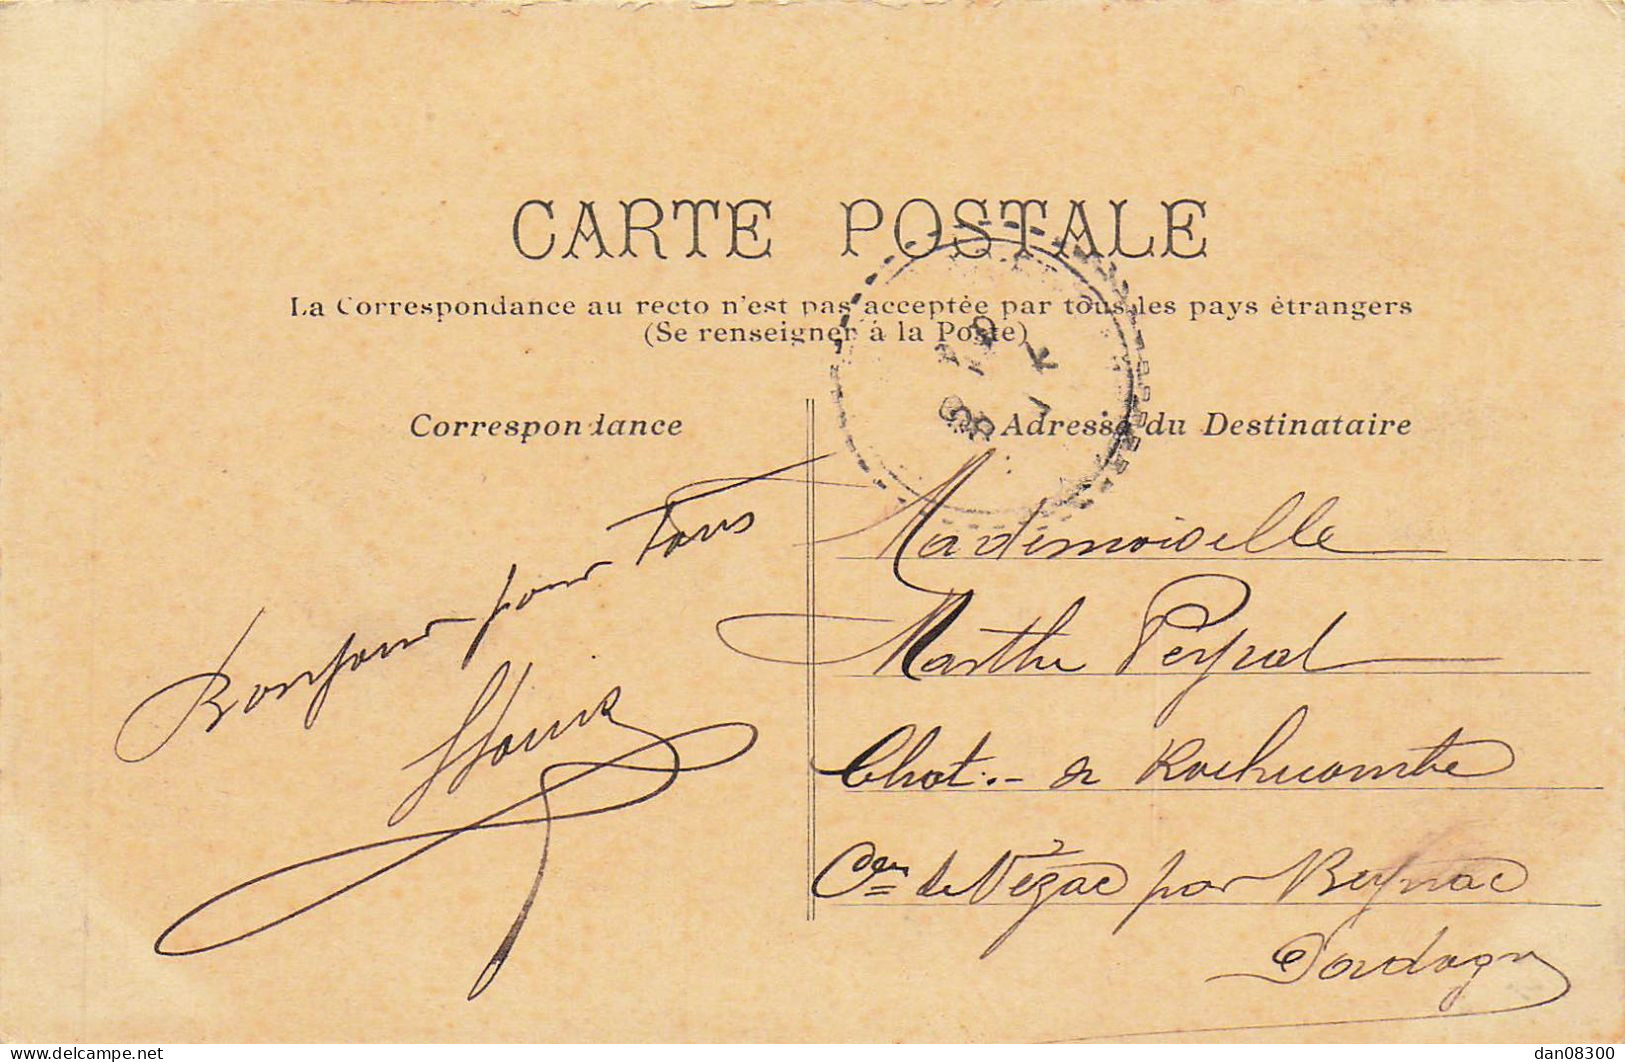 CARTE POSTALE
La Correspondance au recto n'est pas acceptée par tous les pays étrangers
(Se renseigner à la Poste)
Correspondance
Bonjour pour Tous
Adresse du Destinataire
Mademoiselle
Marthe Peyrat
Chat.. - de Rochecombe
Cne de Vézac par Beynac
Dordogne
delcampe.net
dan08300